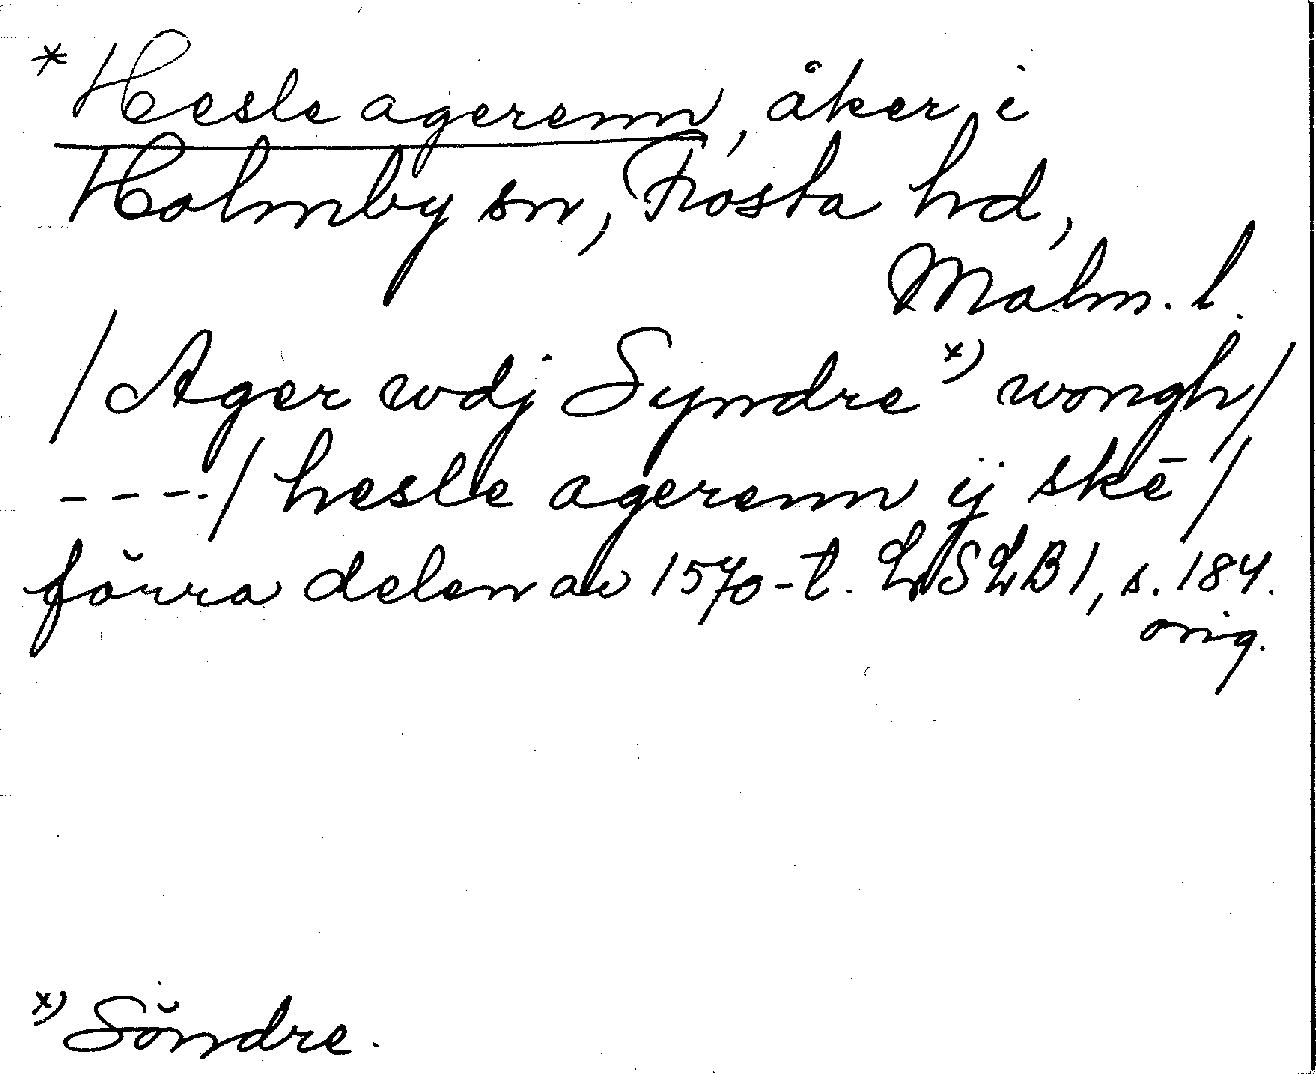 * Hesle agerenn, åker i
Holmby sn, Frosta hd,
Malm. l.
/ Ager wdj Syndre x) wongh /
----/ hesle agerenn ij skē /
förra delen av 1570-t. LSLB1, s. 184.
orig.
x) Söndre.